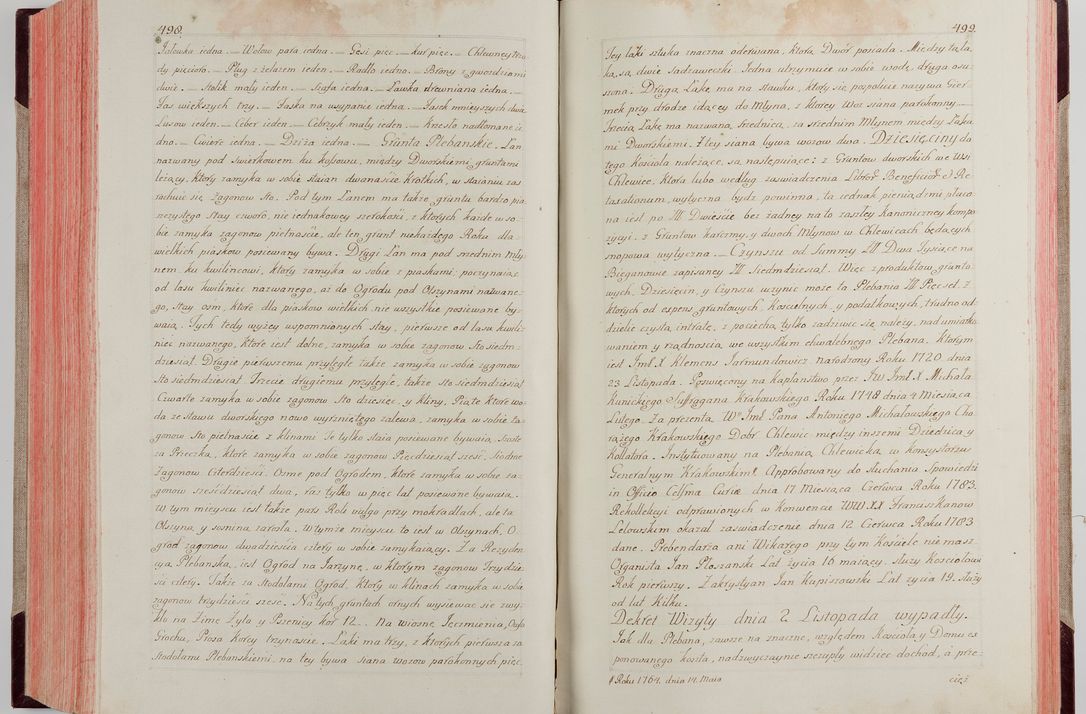 498.
Jałowka iedna. — Wołow para iedna. — Gęsi pięc. — Kur pięc. — Chlewney trzo
dy pięcioro. — Pług z żelazem ieden. — Radło iedno. — Brony z gwozdziami
dwie. — Stolik mały ieden. — Szafa iedna. — Ławka drewniana iedna. —
Fas większych trzy. — Faska na wsypanie iedna. — Fasek mnieyszych dwa
ieden. — Ceber ieden. — Cebrzyk mały ieden. — Krzesło nadłomane ie
dno. — Cwierć iedna. — Dzieża iedna. — Grunta Plebanskie. Łan
nazwany pod Swierkowem ku kępsowu, między Dworskiemi gruntami
leżący, ktory zamyka w sobie staian dwanaście krotkich, w staianiu zas
rachuie się zagonow Sto. Pod tym Łanem ma także gruntu bardzo pia
szczystego Stay czworo, nie iednakowey szerokości, z ktorych każde w so-
bie zamyka zagonow pietnaście, ale ten grunt niekażdego Roku dla
wielkich piaskow posiewany bywa. Drugi Łan ma pod srzednim Mły-
nem ku kwilincowi, ktory zamyka w sobie z piaskami, poczynaiąc
od lasu kwiliniec nazwanego, aż do Ogrodu pod Olszynami nazwane-
go, stay osm, ktore dla piaskow wielkich nie wszystkie posiewane by-
waią. Tych tedy wyżey wspomnionych stay, pierwsze od lasu kwili-
niec nazwanego, ktore iest dolne, zamyka w sobie zagonow sto siedm-
dziesiąt. Drugie pierwszemu przyległe także zamyka w sobie zagonow
sto siedmdziesiąt. Trzecie drugiemu przyległe, także sto siedmdziesiąt
Czwarte zamyka w sobie zagonow sto dziesięc, y kliny. Piąte ktore wo-
da ze stawu dworskiego nowo wyrzniętego zalewa, zamyka w sobie za-
gonow sto pietnaście z klinami. Te tylko staia posiewane bywaią, Szoste
za Przeczką, ktore zamyka w sobie zagonow Pięcdziesiąt szesc, Siodme
zagonow Czterdzieści. Osme pod Ogrodem, ktore zamyka w sobie za-
gonow szesćdziesiąt dwa, raz tylko w pięc lat posiewane bywaią.
W tym mieyscu iest także part Roli wulgo przy mokradlach, ale ta
Olszyną, y sosniną zarosła. W tymże mieyscu to iest w Olszynach, O
grod zagonow dwadzieścia cztery w sobie zamykaiący. Za Rezyden
cyą Plebanską, iest Ogrod na Jarzynę, w ktorym zagonow Trzydzie
ści cztery. Także za Stodołami Ogrod, ktory w klinach zamyka w sobie
zagonow trzydzieści szesc. Na tych gruntach ornych wysiewać sie zwy-
kło na Zimę Żyta y Pszenicy kor: 12. Na wiosnę Jęczmienia, Owsa
Grochu, Prosa Korcy trzynaście. Łąki ma trzy, z ktorych pierwsza za
Stodołami Plebanskiemi, na tey bywa siana wozow parokonnych pięc.
499.
Tey łąki sztuka znaczna oderwana, ktorą Dwór posiada. Między tą łą
ką, są dwie sadzaweczki. Jedna utrzymuie w sobie wodę, druga osu
szona. Drugą Łąkę ma na stawku, ktory się pospolicie nazywa Gier
mek przy drodze idącey do Młyna, z ktorey Woz siana parokonny. —
Trzecią Łąkę ma nazwaną Srzednica, za srzednim Młynem między Łąka
mi Dworskiemi. Z tey siana bywa wozow dwa. Dziesięciny do
tego Kościoła należące, są następuiące: z Gruntow dworskich we Wsi
Chlewice, ktora lubo według zaswiadczenia Libror̃ Beneficior̃ et Re-
taxationum, wytyczna bydz powinna, ta iednak pieniądzmi płaco
na iest po Zł Dwieście bez żadney na to zaszłey Kanoniczney kompo
zycyi. z Gruntow karczmy, y dwoch Młynow w Chlewicach będących
snopowa wytyczna. — Czynszu od Summy Zł Dwa Tysiące na
Bieganowie zapisaney Zł Siedmdziesiąt. Więc z produktow grunto
wych, Dziesięcin, y Czynszu uczynic może ta Plebania Zł Pięcset. z
ktorych od expens gruntowych, Kościelnych, y podatkowych, trudno od-
dzielic czystą intratę, z pociechą tylko zadziwić się należy, nad umiarko
waniem y rządnością we wszystkim chwalebnego Plebana. Ktorym
iest Jmć X Klemens Jarmundowicz narodzony Roku 1720. dnia
23. Listopada. Poswięcony na kapłanstwo przez JW Jmć X Michała
Kunickiego Suffragana Krakowskiego Roku 1748 dnia 4 Miesiąca
Lutego. Za prezentą Wo Jmć Pana Antoniego Michałowskiego Cho
rążego Krakowskiego Dobr Chlewic między inszemi Dziedzica y
Kollatora. Instytuowany na Plebanią Chlewicką, w konsystorzu
Generalnym Krakowskim. Approbowany do słuchania Spowiedzi
in Officio Celsmæ Curiæ dnia 17 Miesiąca Czerwca Roku 1783.
Rekollekcyi odprawionych w Konwencie WW XX Franciszkanow
Lelowskim okazał zaswiadczenie dnia 12 Czerwca Roku 1783
dane. Prebendarza ani Wikarego przy tym Kościele nie masz.
Organista Jan Płoszanski Lat życia 16 maiący, służy Kościołowi
Rok pierwszy. Zakrystyan Jan Kapiszowski Lat życia 19. służy
od lat Kilku.
Dekret Wizyty dnia 2 Listopada wypadły.
Jak dla Plebana, zawsze na znaczne, względem Kościoła, y Domu ex
ponowanego koszta, nadzwyczaynie szczupły widziec dochod, a prze-
Roku 1764. dnia 14. Maia
cięż